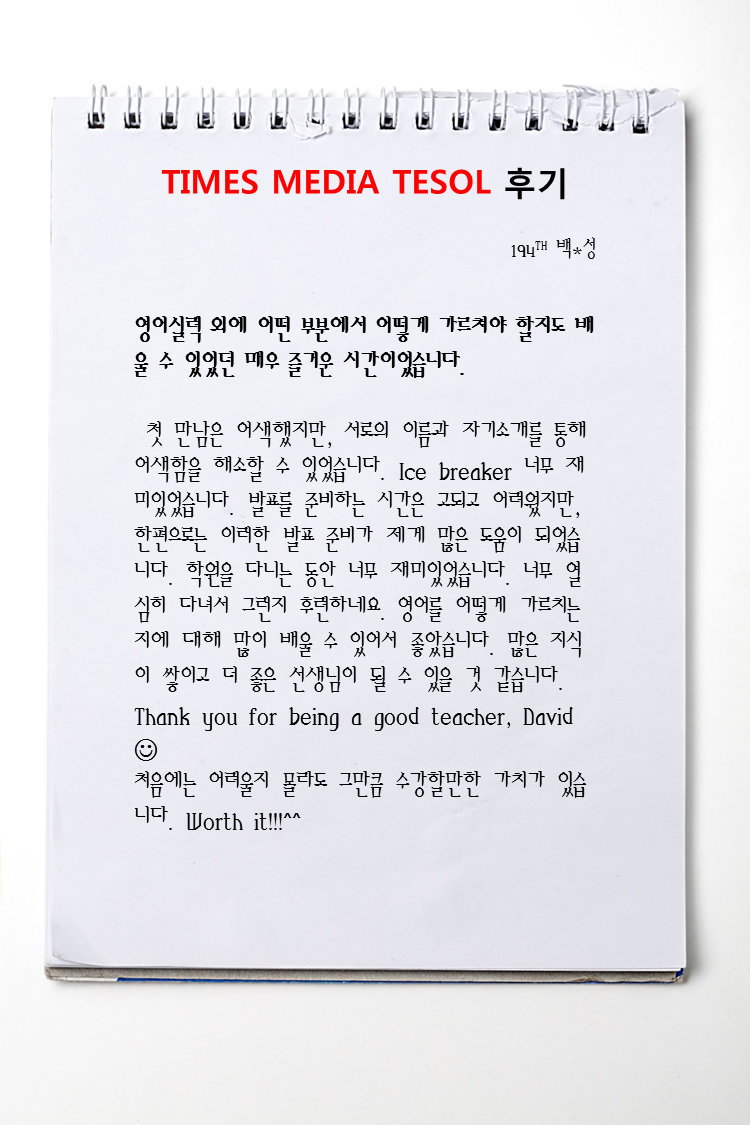 TIMES MEDIA TESOL 후기
194TH 백*성
영어실력 외에 어떤 부분에서 어떻게 가르쳐야 할지도 배
울 수 있었던 매우 즐거운 시간이었습니다.
첫 만남은 어색했지만, 서로의 이름과 자기소개를 통해
어색함을 해소할 수 있었습니다. Ice breaker 너무 재
미있었습니다. 발표를 준비하는 시간은 고되고 어려웠지만,
한편으로는 이러한 발표 준비가 제게 많은 도움이 되었습
니다. 학원을 다니는 동안 너무 재미있었습니다. 너무 열
심히 다녀서 그런지 후련하네요. 영어를 어떻게 가르치는
지에 대해 많이 배울 수 있어서 좋았습니다. 많은 지식
이 쌓이고 더 좋은 선생님이 될 수 있을 것 같습니다.
Thank you for being a good teacher, David
☺
처음에는 어려울지 몰라도 그만큼 수강할만한 가치가 있습
니다. Worth it!!!^^